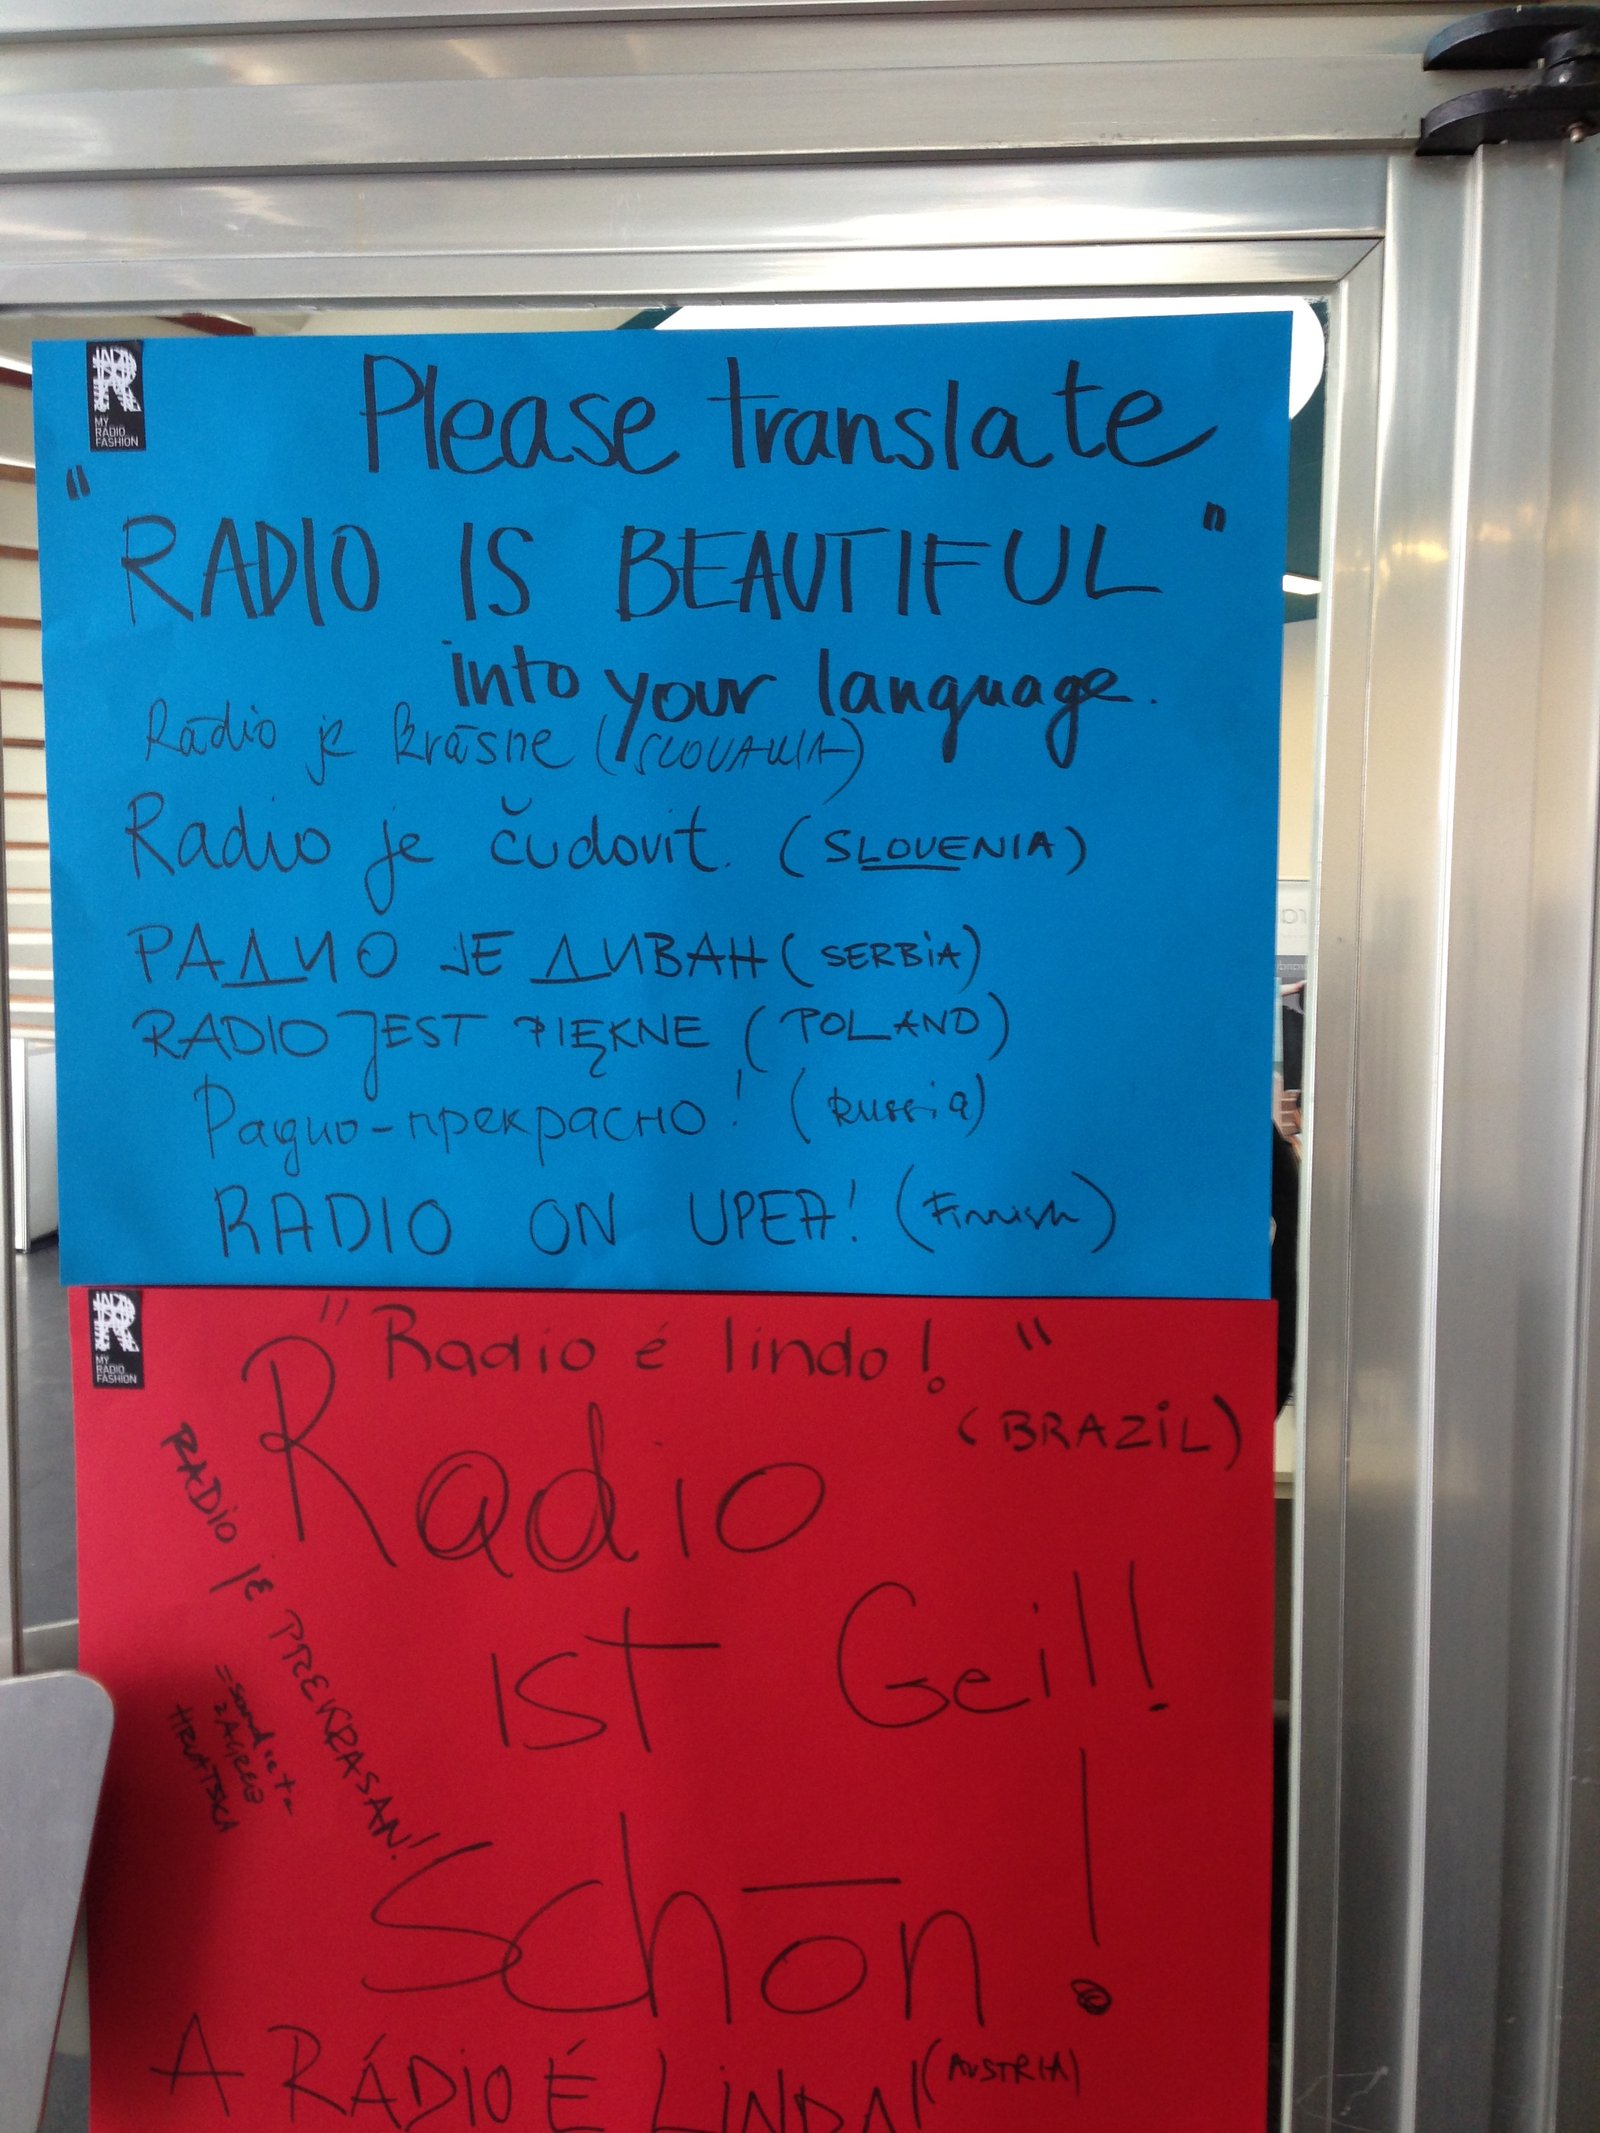 MY
RADIO
FASHION
Please translate
"RADIO IS BEAUTIFUL"
into your language.
Rádio je krásne (SLOVAKIA)
Radio je čudovit. (SLOVENIA)
РАДИО ЈЕ ДИВАН (SERBIA)
RADIO JEST PIĘKNE (POLAND)
Радио-прекрасно! (Russia)
RADIO ON UPEA! (Finnish)
MY
RADIO
FASHION
"Radio é lindo!"
(BRAZIL)
Radio
IST Geil!
Schōn!
(AUSTRIA)
RADIO JE PREKRASAN!
ZAGREB
HRVATSKA
A RÁDIO É LINDA!